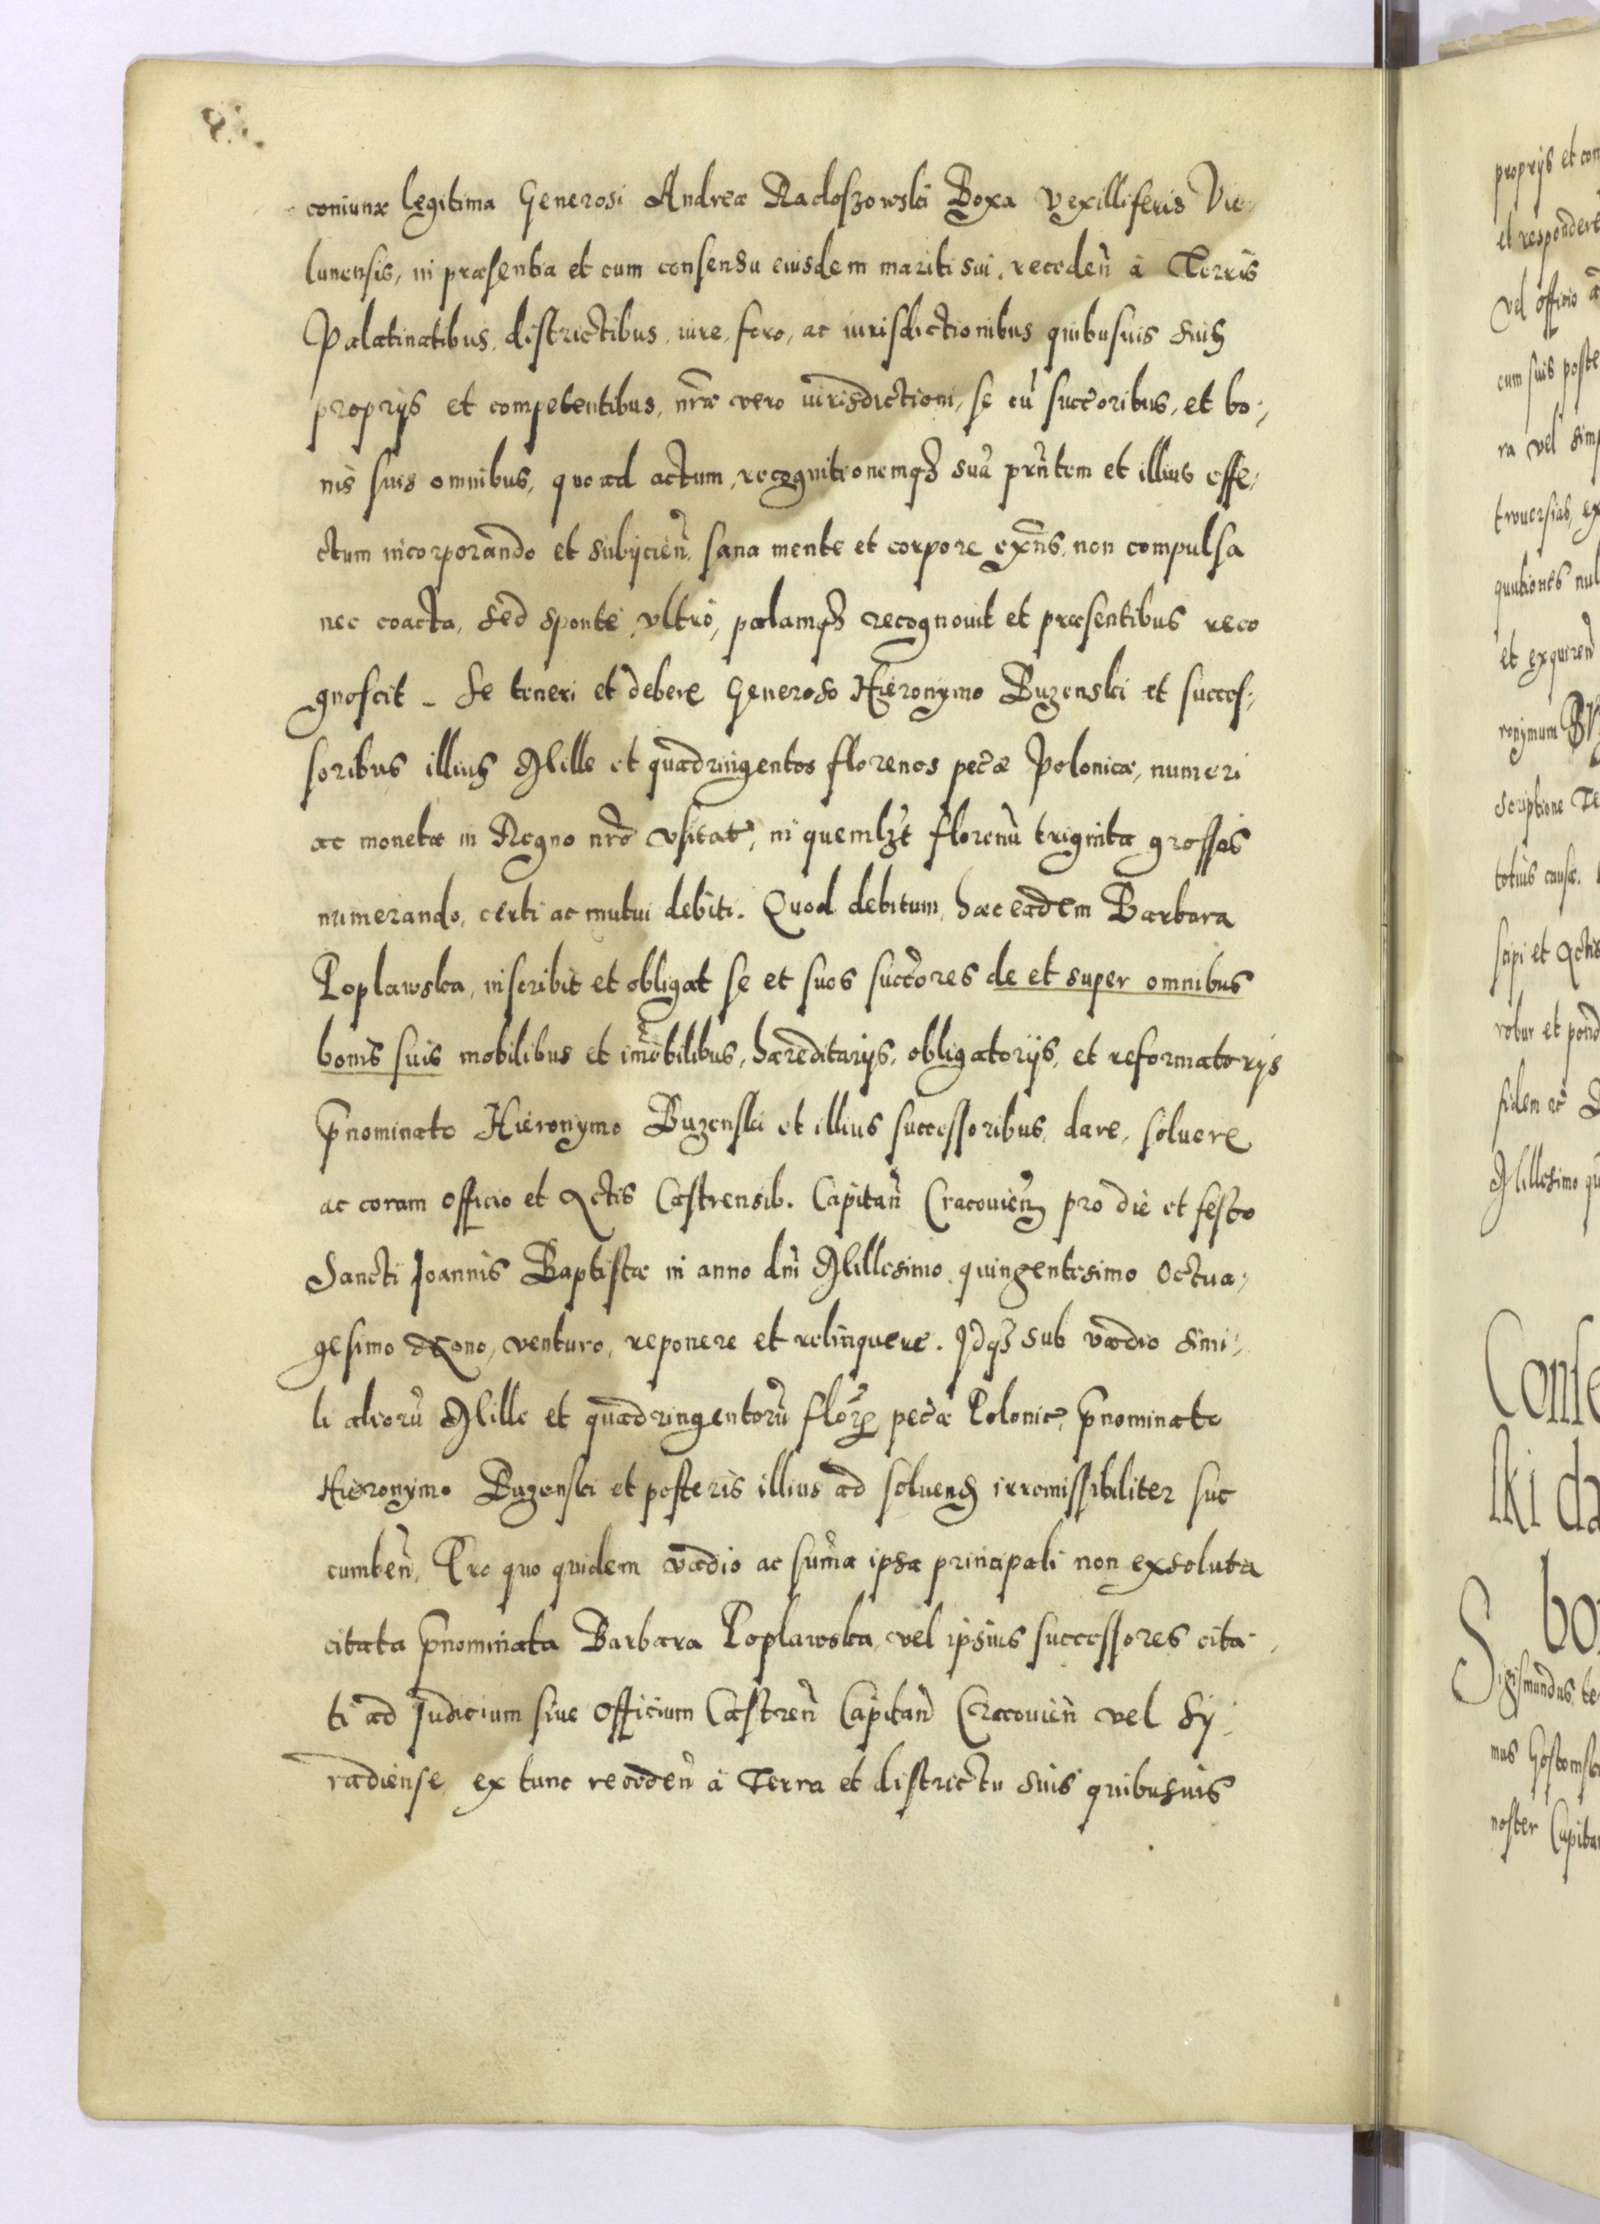 coniunx legitima Generosi Andreæ Radoszowski Boxa Vexilliferis Vie-
lunensis, in præsentia et cum consensu eiusdem mariti sui, receden̄ à Terris
Palatinatibus, districtibus, iure, foro, ac iurisdictionibus quibusuis suis
proprijs et competentibus, nr̄æ vero iurisdictioni, se cū succ̄oribus, et bo-
nis suis omnibus, quoad actum, recognitionemqз suā prn̄tem et illius effe-
ctum incorporando et subijcien̄, sana mente et corpore exn̄s, non compulsa
nec coacta, sed sponte, vltrò, palamqз recognouit et præsentibus reco
gnoscit - Se teneri et debere Generoso Hieronymo Buzenski et succes-
soribus illius Mille et quadringentos florenos pec̄æ Polonicæ, numeri
ac monetæ in Regno nr̄o vsitat, in quemlзt florenū triginta grossos
numerando, certi ac mutui debiti. Quod debitum, hæc eadem Barbara
Poplawska, inscribit et obligat se et suos succ̄ores de et super omnibus
bonis suis mobilibus et im̄obilibus, hæreditarijs, obligatorijs, et reformatorijs
p̄nominato Hieronymo Buzenski et illius successoribus, dare, soluere
ac coram Officio et Actis Castrensib. Capitan̄ Cracouien̄ pro die et festo
Sancti Joannis Baptistæ in anno dn̄i Millesimo quingentesimo Octua-
gesimo venturo, reponere et relinquere. Jdqз sub vadio simi-
li aliorū Mille et quadringentorū flor̄ pec̄æ Polonic, p̄nominato
Hieronymo Buzenski et posteris illius ad soluend irremissibiliter suc
cumben̄, Pro quo quidem vadio ac sum̄a ipsa principali non exsoluta
citata p̄nominata Barbara Poplawska, vel ipsius successores cita-
ti ad Judicium siue Officium Castren̄ Capitan̄ Cracouien̄ vel Sy-
radiense, ex tunc receden̄ à Terra et districtu suis quibusuis
proprijs et com
et respondere
vel officio
cum suis poste
ra vel simp
trouersias, ex
quutiones nul
et exquirend
ronymum
scriptione Te
totius causæ.
scipi et Actis
robur et pond
fidem
Millesimo qu
Conse
ski da
bo
Sigismundus te
mus Gostomsk
noster Capita